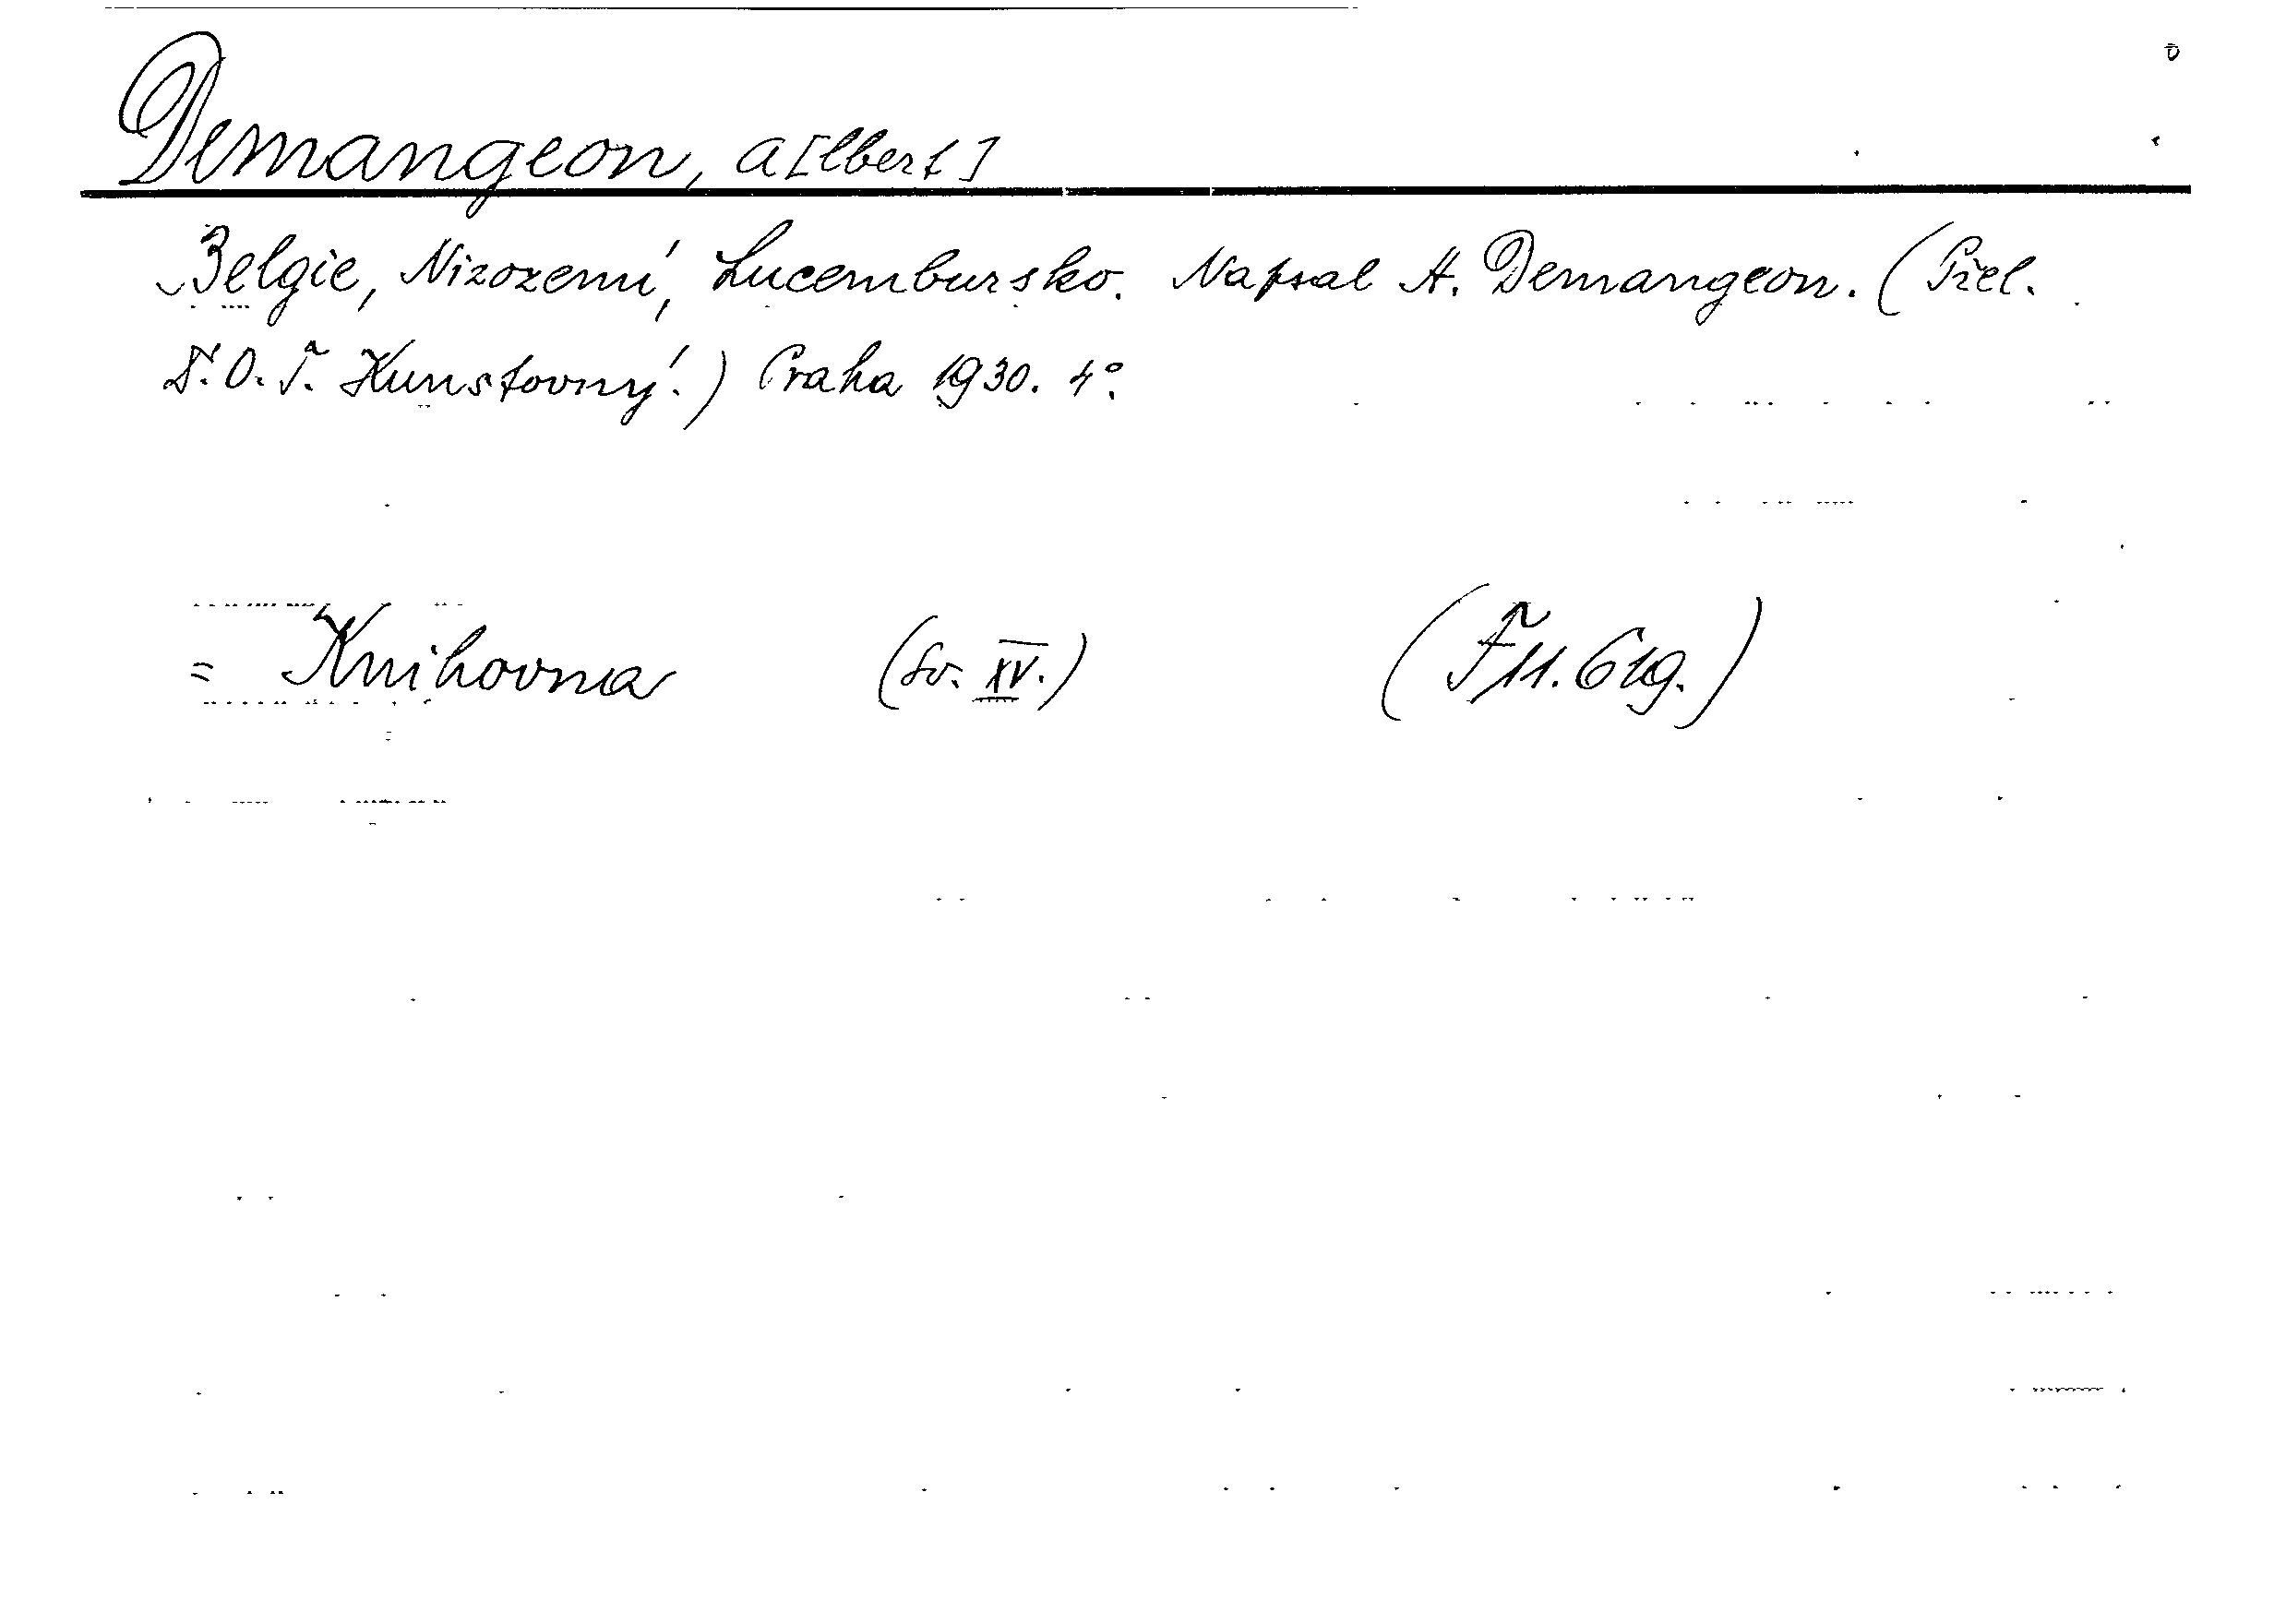 Demangeon, A[lbert]
Belgie, Nizozemí, Lucembursko. Napsal A. Demangeon. (Přel.
F. O. T. Kunstovný.) Praha 1930. 4°.
= Knihovna (Sv. XV.) (F 11. 619.)